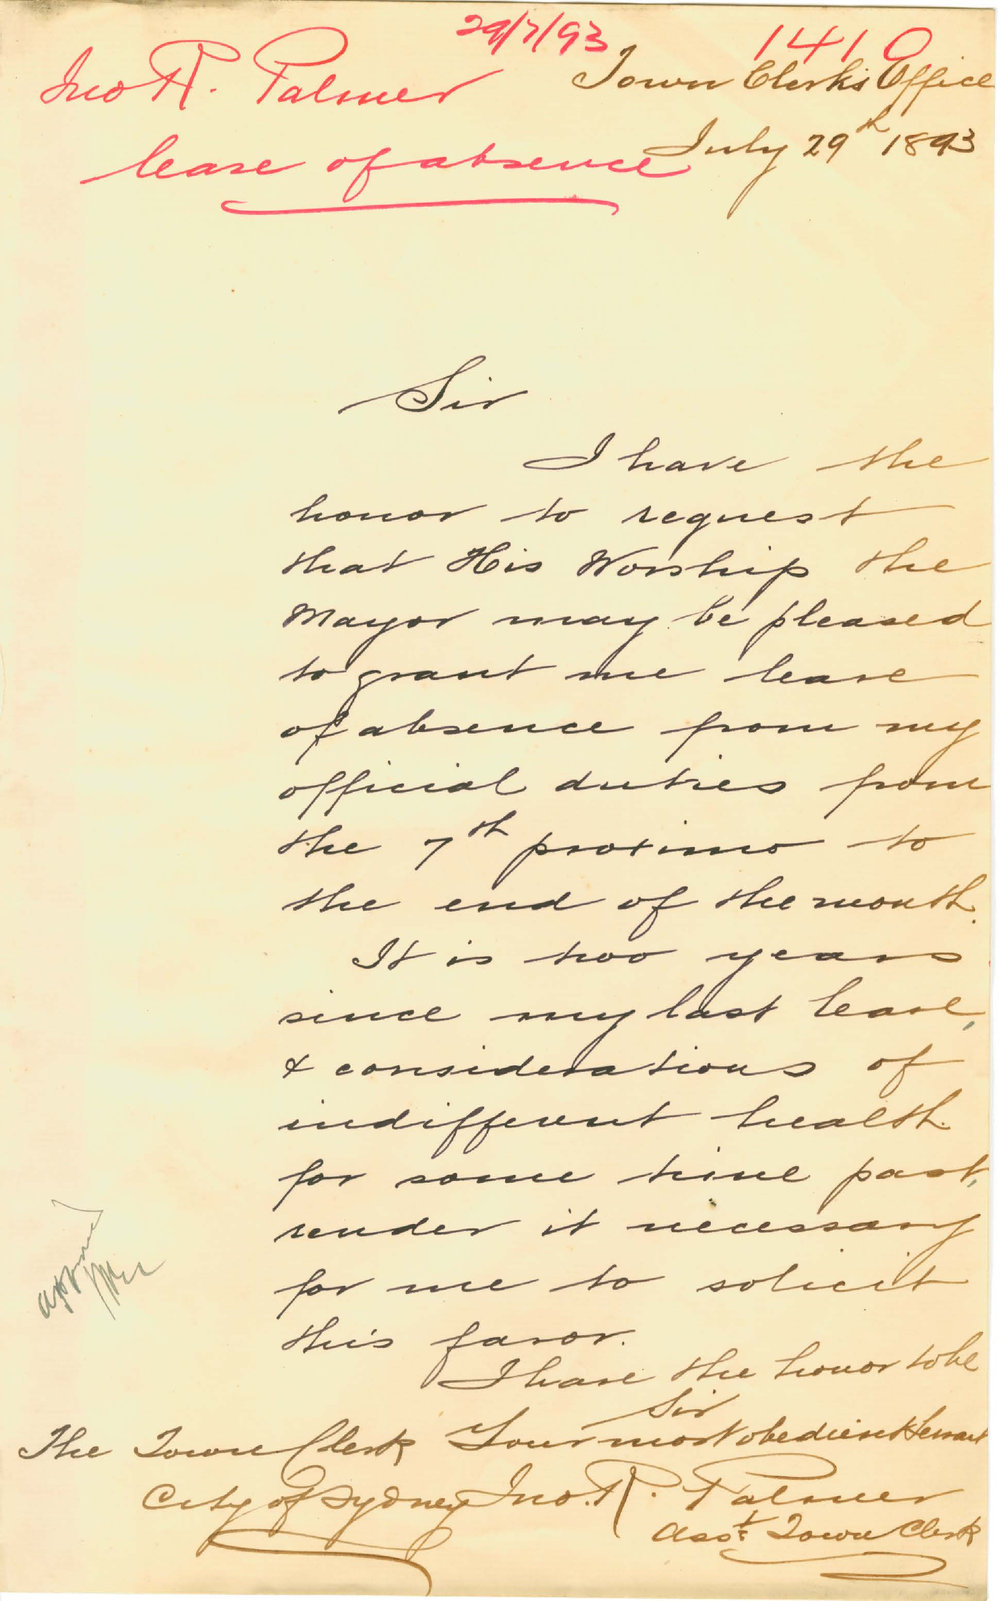 29/7/93
1410
Jno R. Palmer
leave of absence
Town Clerk's Office
July 29th 1893
Sir
I have the
honor to request
that His Worship the
Mayor may be pleased
to grant me leave
of absence from my
official duties from
the 7th proximo to
the end of the month.
It is two years
since my last leave,
& considerations of
indifferent health
for some time past,
render it necessary
for me to solicit
this favor.
I have the honor to be
Sir
Your most obedient Servant
Jno. R. Palmer
Asst Town Clerk
The Town Clerk
City of Sydney
approved